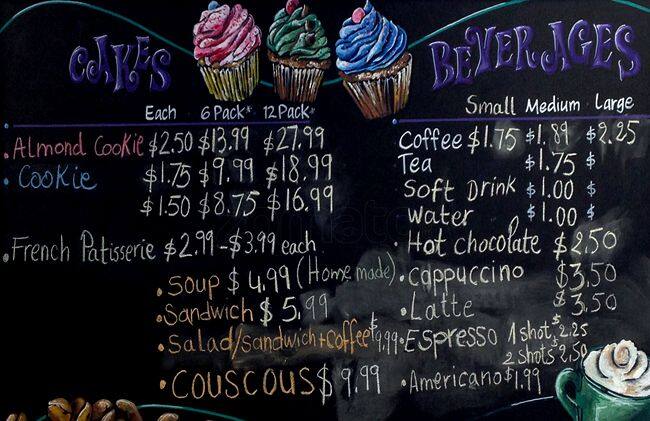 CAKES
Each 6 Pack* 12 Pack*
Almond Cookie $2.50 $13.99 $27.99
Cookie $1.75 $9.99 $18.99
$1.50 $8.75 $16.99
French Patisserie $2.99-$3.99 each
Soup $4.99 (Home made)
Sandwich $5.99
Salad/Sandwich+Coffee $9.99
COUSCOUS $9.99
BEVERAGES
Small Medium Large
Coffee $1.75 $1.89 $2.25
Tea $1.75 $
Soft Drink $1.00 $
Water $1.00 $
Hot chocolate $2.50
Cappuccino $3.50
Latte $3.50
Espresso 1 shot $2.25
2 shots 2.50
Americano $1.99